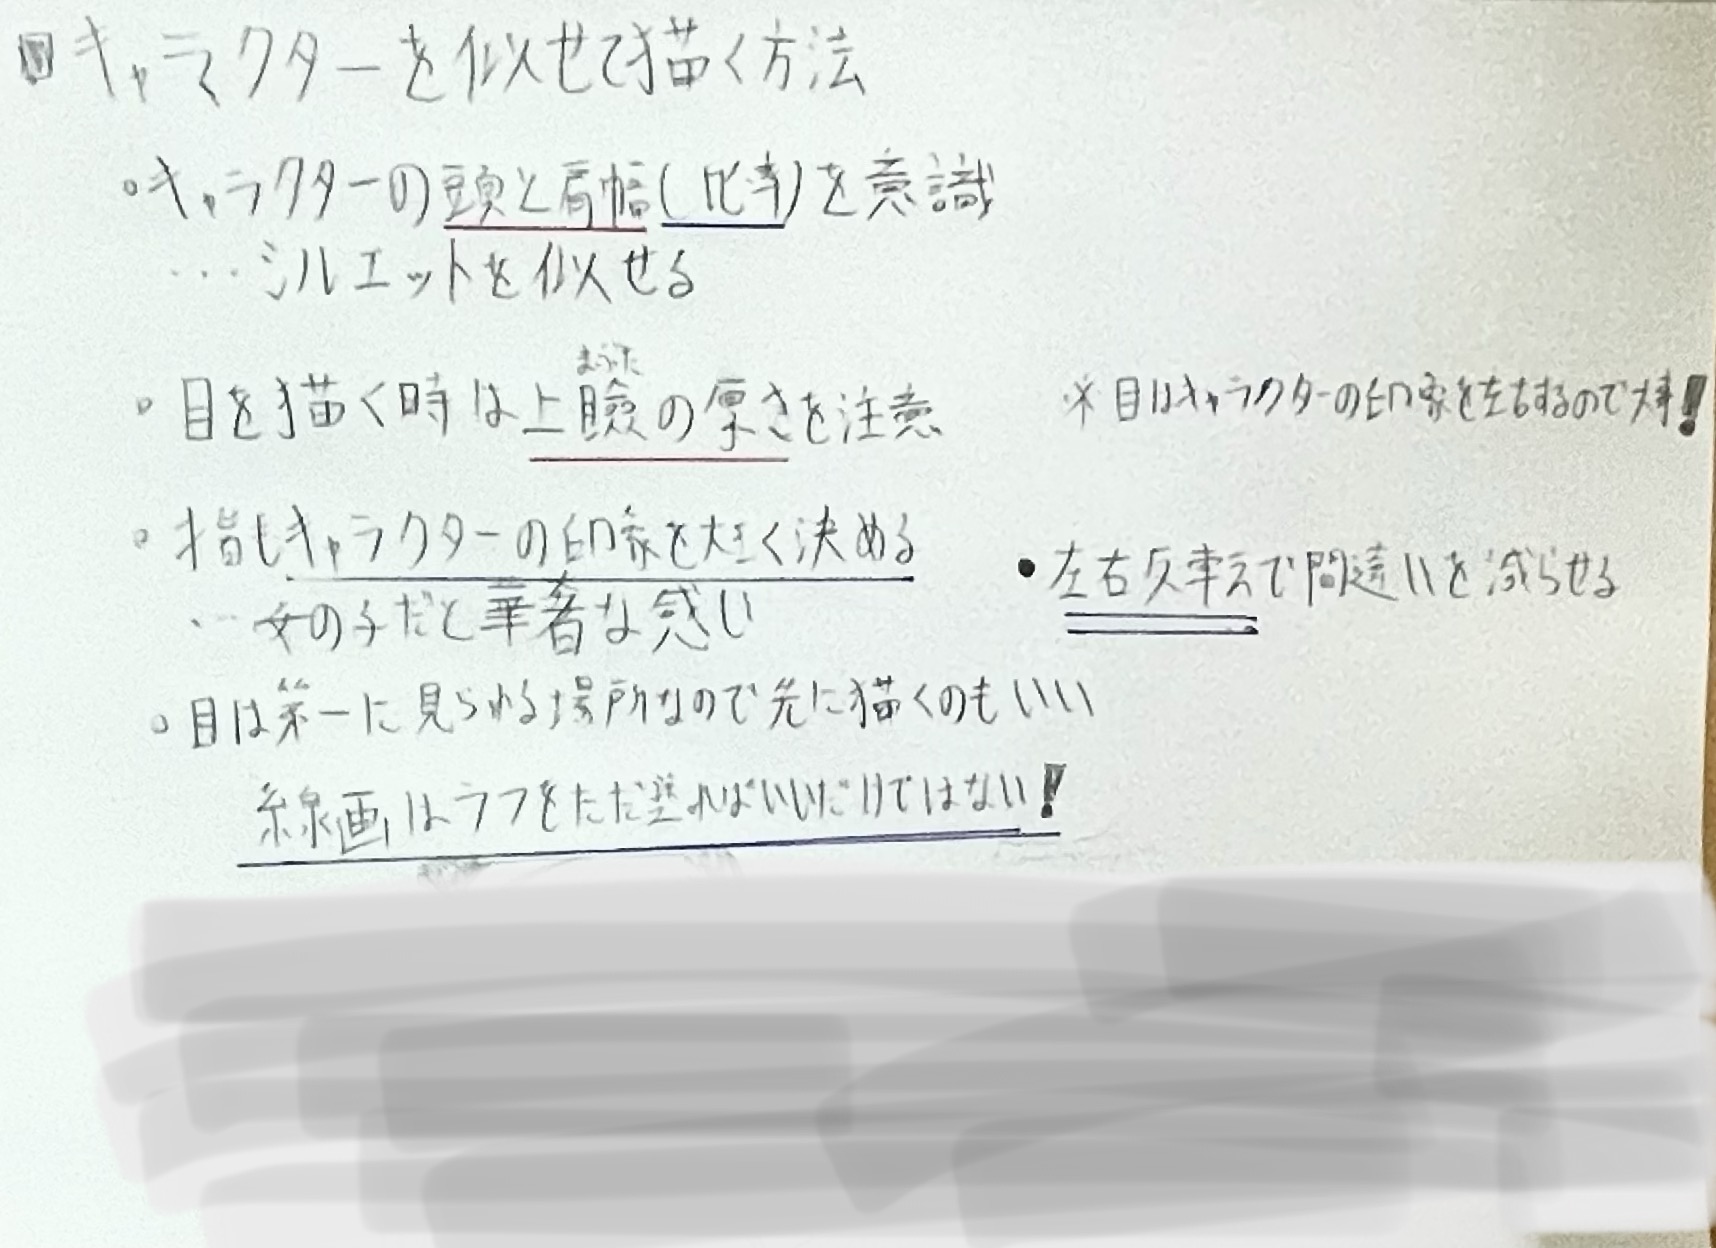 キャラクターを似せて描く方法
・キャラクターの頭と肩幅(比率)を意識
…シルエットを似せる
まぶた
・目を描く時は上瞼の厚さを注意
※目はキャラクターの印象を左右するので大事!
・指もキャラクターの印象を大きく決める
…女の子だと華奢な感じ
・左右反転で間違いを減らせる
・目は第一に見られる場所なので先に描くのもいい
線画はラフをただ塗ればいいだけではない!